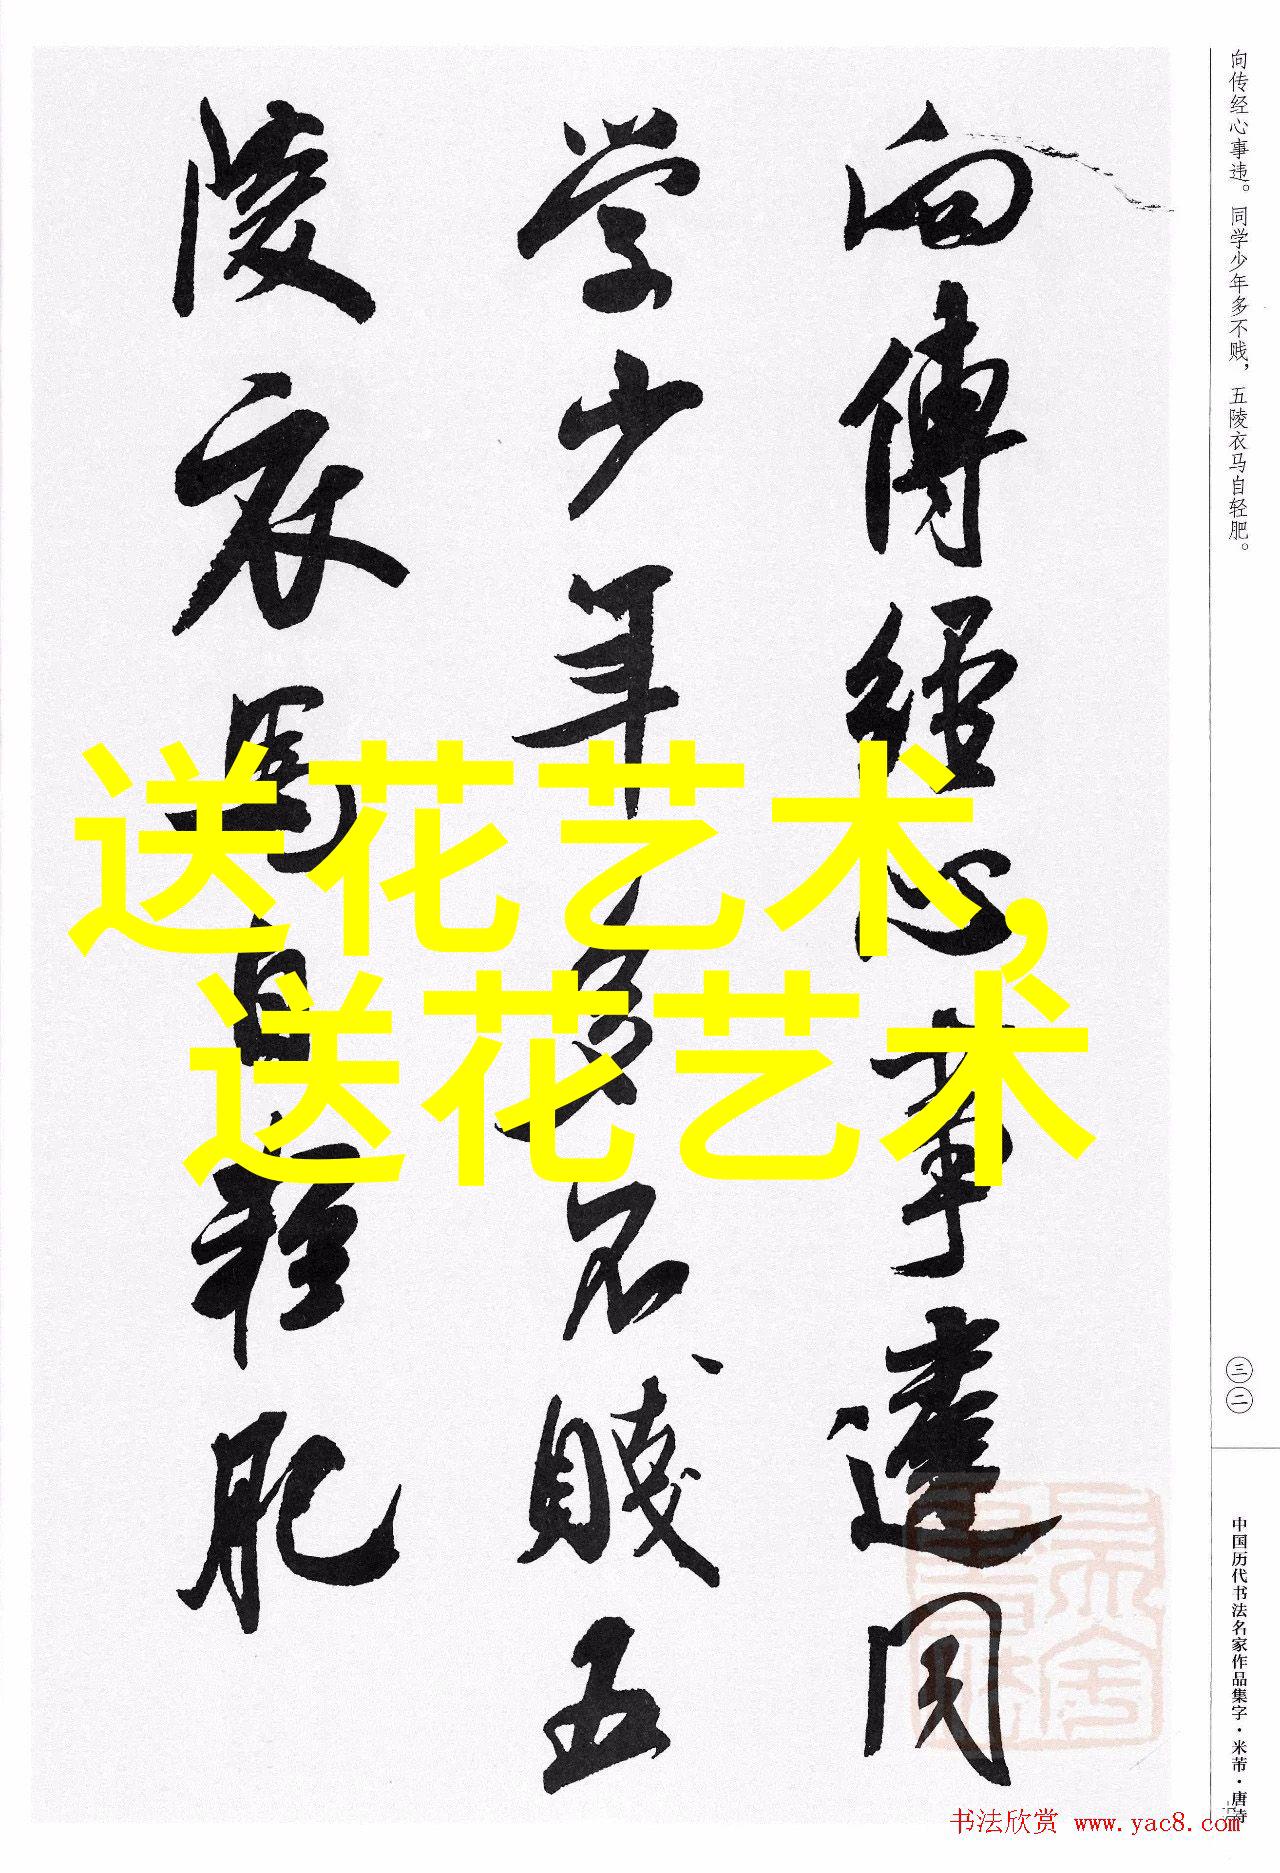 向傳經心事違同
学少年多不賤五
陵衣馬自輕肥
送花艺术,
送花艺术
向传经心事违。同学少年多不贱，五陵衣马自轻肥。
三二
中国历代书法名家作品集字·米芾·唐诗
书法欣赏 www.yac8.com